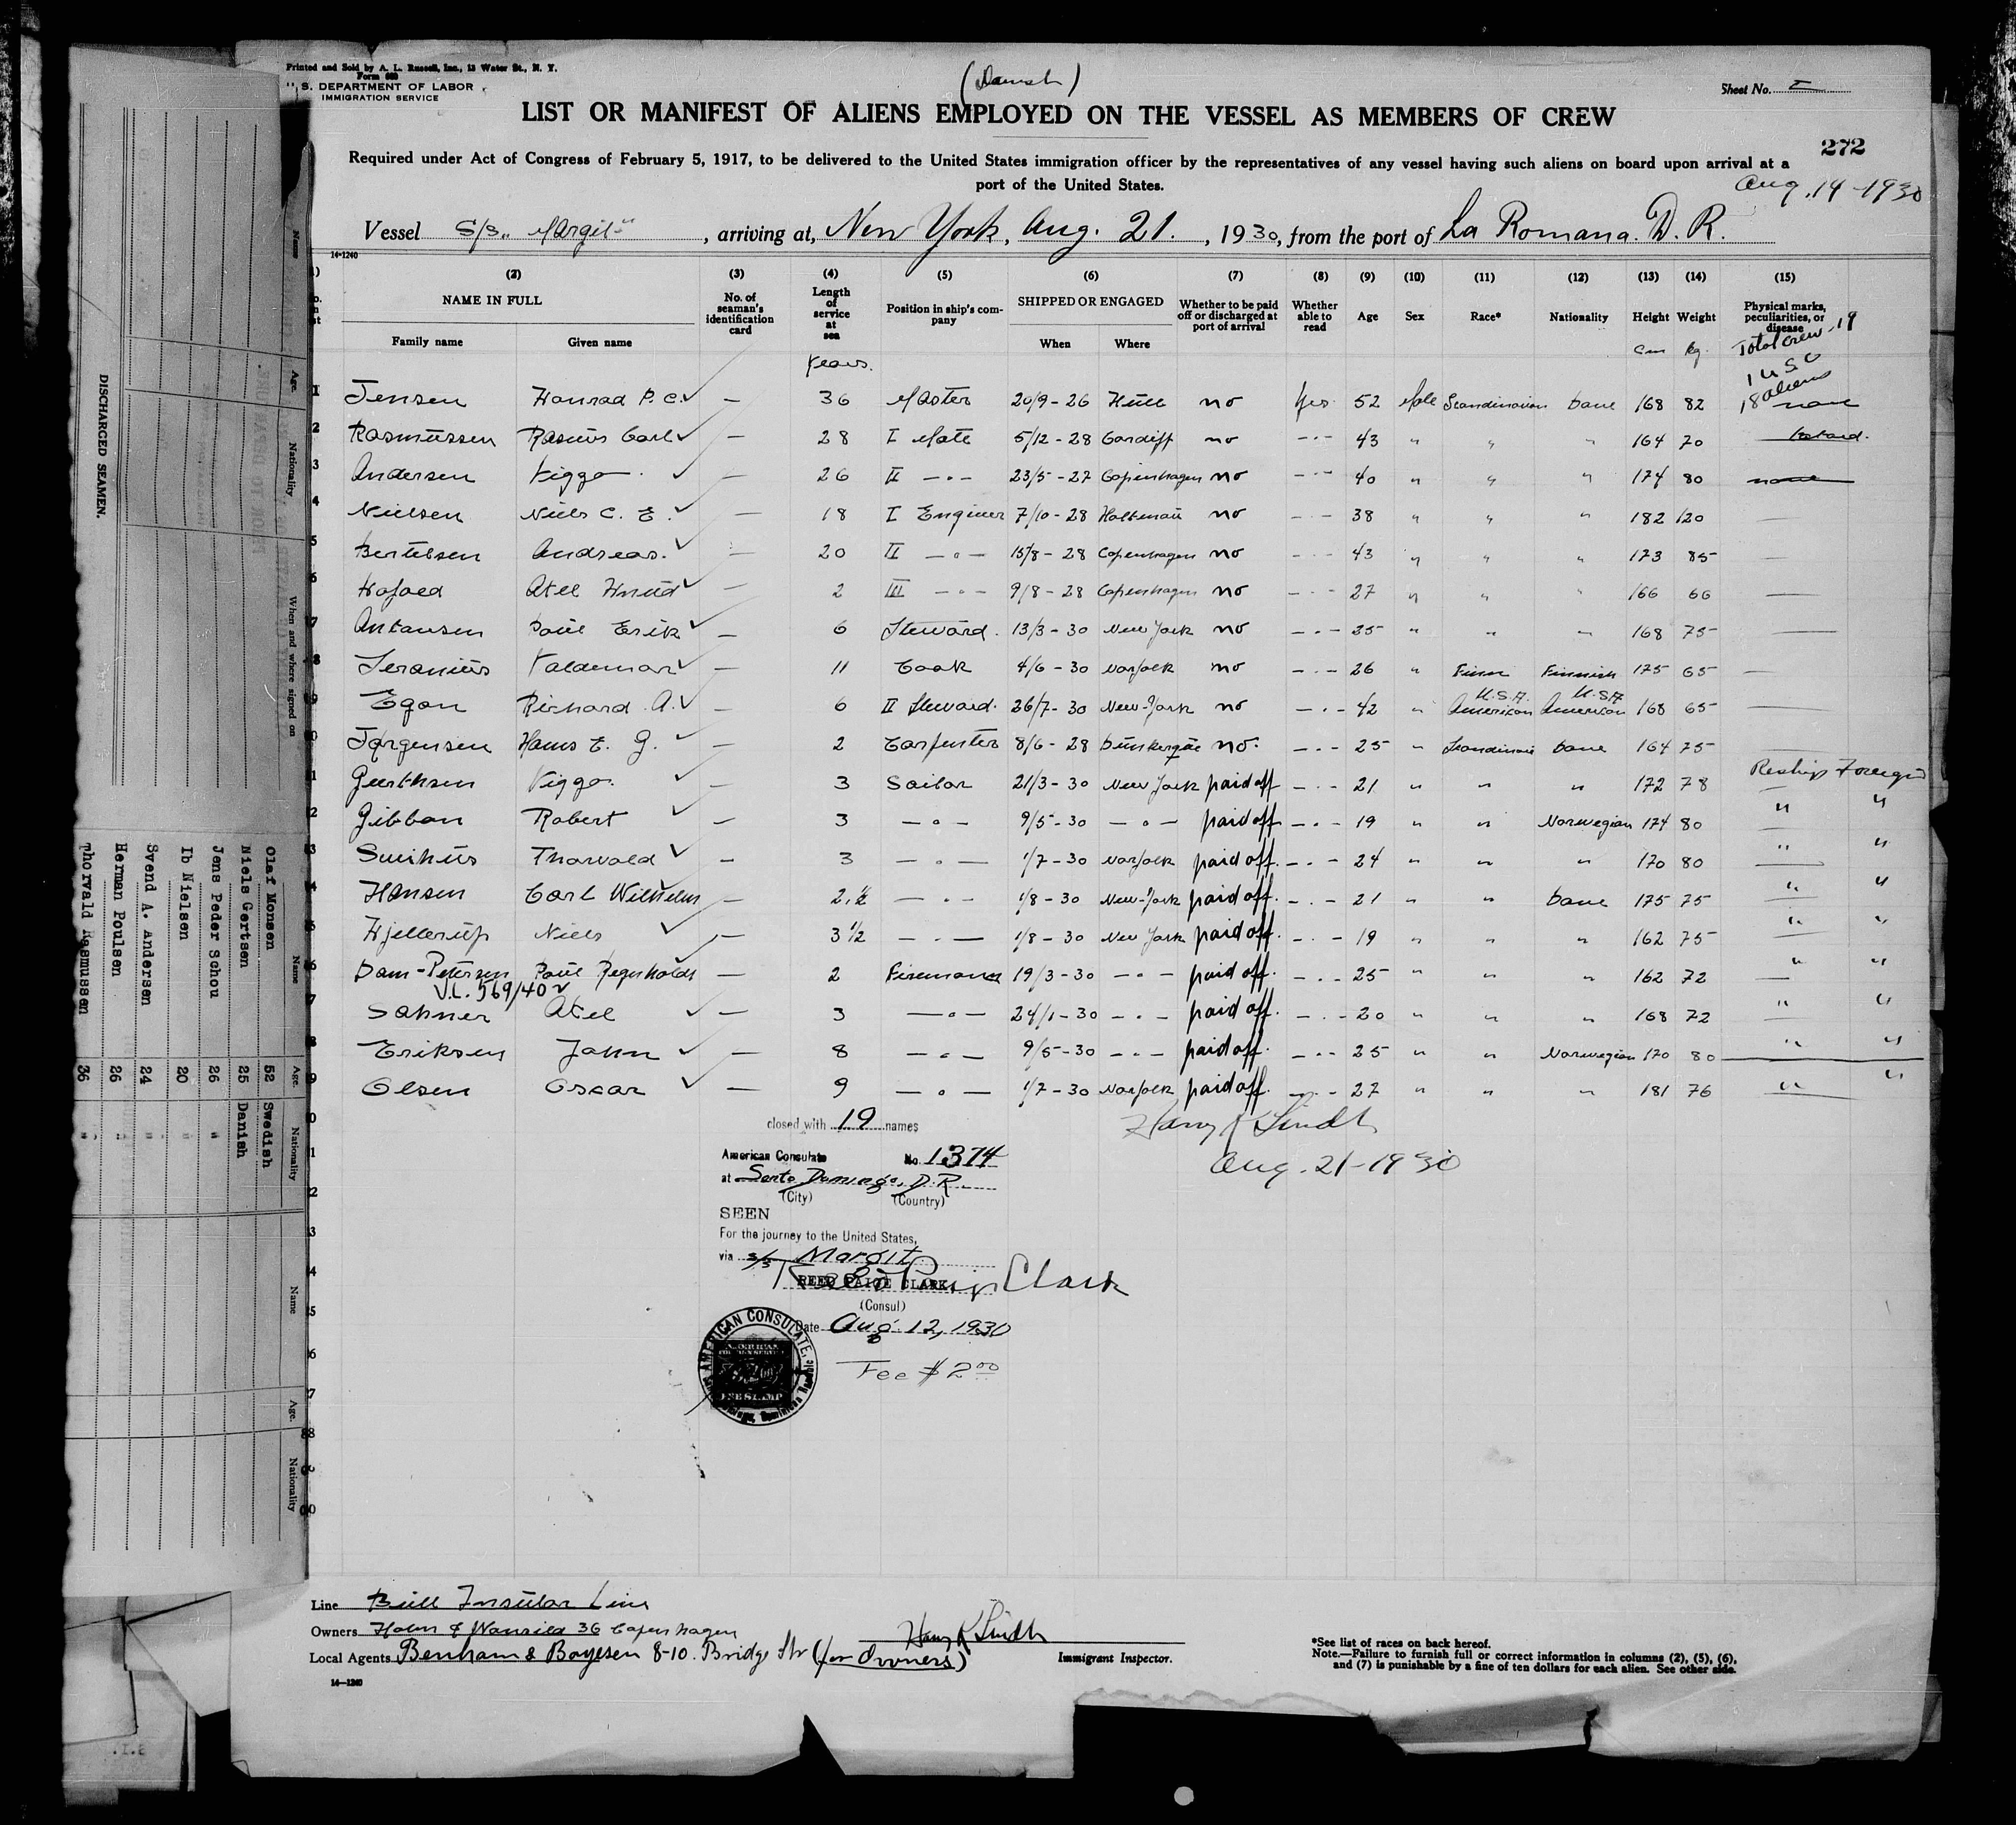 Printed and Sold by A. L. Russell, Inc., 13 Water St., N. Y.
Form 689
U. S. DEPARTMENT OF LABOR
IMMIGRATION SERVICE
(Danish)
Sheet No. I
LIST OR MANIFEST OF ALIENS EMPLOYED ON THE VESSEL AS MEMBERS OF CREW
272
Required under Act of Congress of February 5, 1917, to be delivered to the United States immigration officer by the representatives of any vessel having such aliens on board upon arrival at a
port of the United States.
Aug. 14 - 1930
Vessel S/S. "Margit", arriving at, New York, Aug. 21., 1930, from the port of La Romana. D. R.
14-1240
(2) (3) (4) (5) (6) (7) (8) (9) (10) (11) (12) (13) (14) (15)
NAME IN FULL
Family name Given name
No. of seaman's identification card
Length of service at sea
Position in ship's company
SHIPPED OR ENGAGED
When Where
Whether to be paid off or discharged at port of arrival
Whether able to read
Age Sex Race* Nationality Height Weight
Physical marks, peculiarities, or disease
Years. Cm Kg. Total crew 19
1 USC
18 aliens
1 Jensen Konrad P. C. — 36 Master 20/9 - 26 Hull no Yes 52 Male Scandinavian Dane 168 82 none
2 Rasmussen Rasmus Carl — 28 I Mate 5/12 - 28 Cardiff no -·- 43 " " " 164 70
3 Andersen Viggo — 26 II -·- 23/5 - 27 Copenhagen no -·- 40 " " " 174 80 none
4 Nielsen Niels C. E. — 18 I Engineer 7/10 - 28 Holtenau no -·- 38 " " " 182 120 —
5 Bertelsen Andreas. — 20 II -·- 15/8 - 28 Copenhagen no -·- 43 " " " 173 85 —
6 Axel Knud — 2 III -·- 9/8 - 28 Copenhagen no -·- 27 " " " 166 66 —
7 Antonsen Poul Erik — 6 Steward. 13/3 - 30 New York no -·- 25 " " " 168 75 —
8 Valdemar — 11 Cook 4/6 - 30 Norfolk no -·- 26 " Finn Finnish 175 65 —
U.S.A. U.S.A.
9 Egon Richard A. — 6 II Steward. 26/7 - 30 New-York no -·- 42 " American American 168 65 —
10 Jørgensen Hans E. G. — 2 Carpenter 8/6 - 28 Dunkerque no. -·- 25 " Scandinavi Dane 164 75 —
11 Viggo. 3 Sailor 21/3 - 30 New York paid off -·- 21 " " " 172 78 Reship Foreign
12 Gibbon Robert — 3 -·- 9/5 - 30 -·- paid off -·- 19 " " Norwegian 174 80 " "
13 Thorvald — 3 -·- 1/7 - 30 Norfolk paid off. -·- 24 " " " 170 80 " "
14 Hansen Carl Wilhelm — 2 1/2 -·- 1/8 - 30 New-York paid off. -·- 21 " " Dane 175 75 " "
15 Kjellerup Niels — 3 1/2 -·- 1/8 - 30 New York paid off. -·- 19 " " " 162 75 " "
16 Dam-Petersen Poul Regnholdt — 2 Fireman 19/3 - 30 -·- paid off. -·- 25 " " " 162 72 " "
V.L. 569/40
17 Axel — 3 -·- 24/1 - 30 -·- paid off. -·- 20 " " " 168 72 " "
18 Eriksen John — 8 -·- 9/5 - 30 -·- paid off. -·- 25 " " Norwegian 170 80 " "
19 Olsen Oscar — 9 -·- 1/7 - 30 Norfolk paid off. -·- 27 " " " 181 76 " "
closed with 19 names
Harry K Lindh
Aug. 21 - 1930
American Consulate No. 1374
at Santo Domingo, D. R.
(City) (Country)
SEEN
For the journey to the United States,
via s/s Margit
Reed Paige Clark
REED PAIGE CLARK
(Consul)
Date Aug. 12, 1930
Fee $2.00
AMERICAN CONSULATE,
Santo Domingo, Dominican Republic
Line Bull Insular Line
Owners Holm & Wonsild 36 Copenhagen
Local Agents Benham & Boyesen 8-10. Bridge Str (for owners)
Harry K Lindh
Immigrant Inspector.
*See list of races on back hereof.
Note.—Failure to furnish full or correct information in columns (2), (5), (6),
and (7) is punishable by a fine of ten dollars for each alien. See other side.
14-1240
DISCHARGED SEAMEN.
Name Age. Nationality When and where signed on
Name Age. Nationality
Olaf Monsen 52 Swedish
Niels Gertsen 25 Danish
Jens Peder Schou 26 "
Ib Nielsen 20 "
Svend A. Andersen 24 "
Herman Poulsen 26 "
Thorvald Rasmussen 36 "
Name Age. Nationality